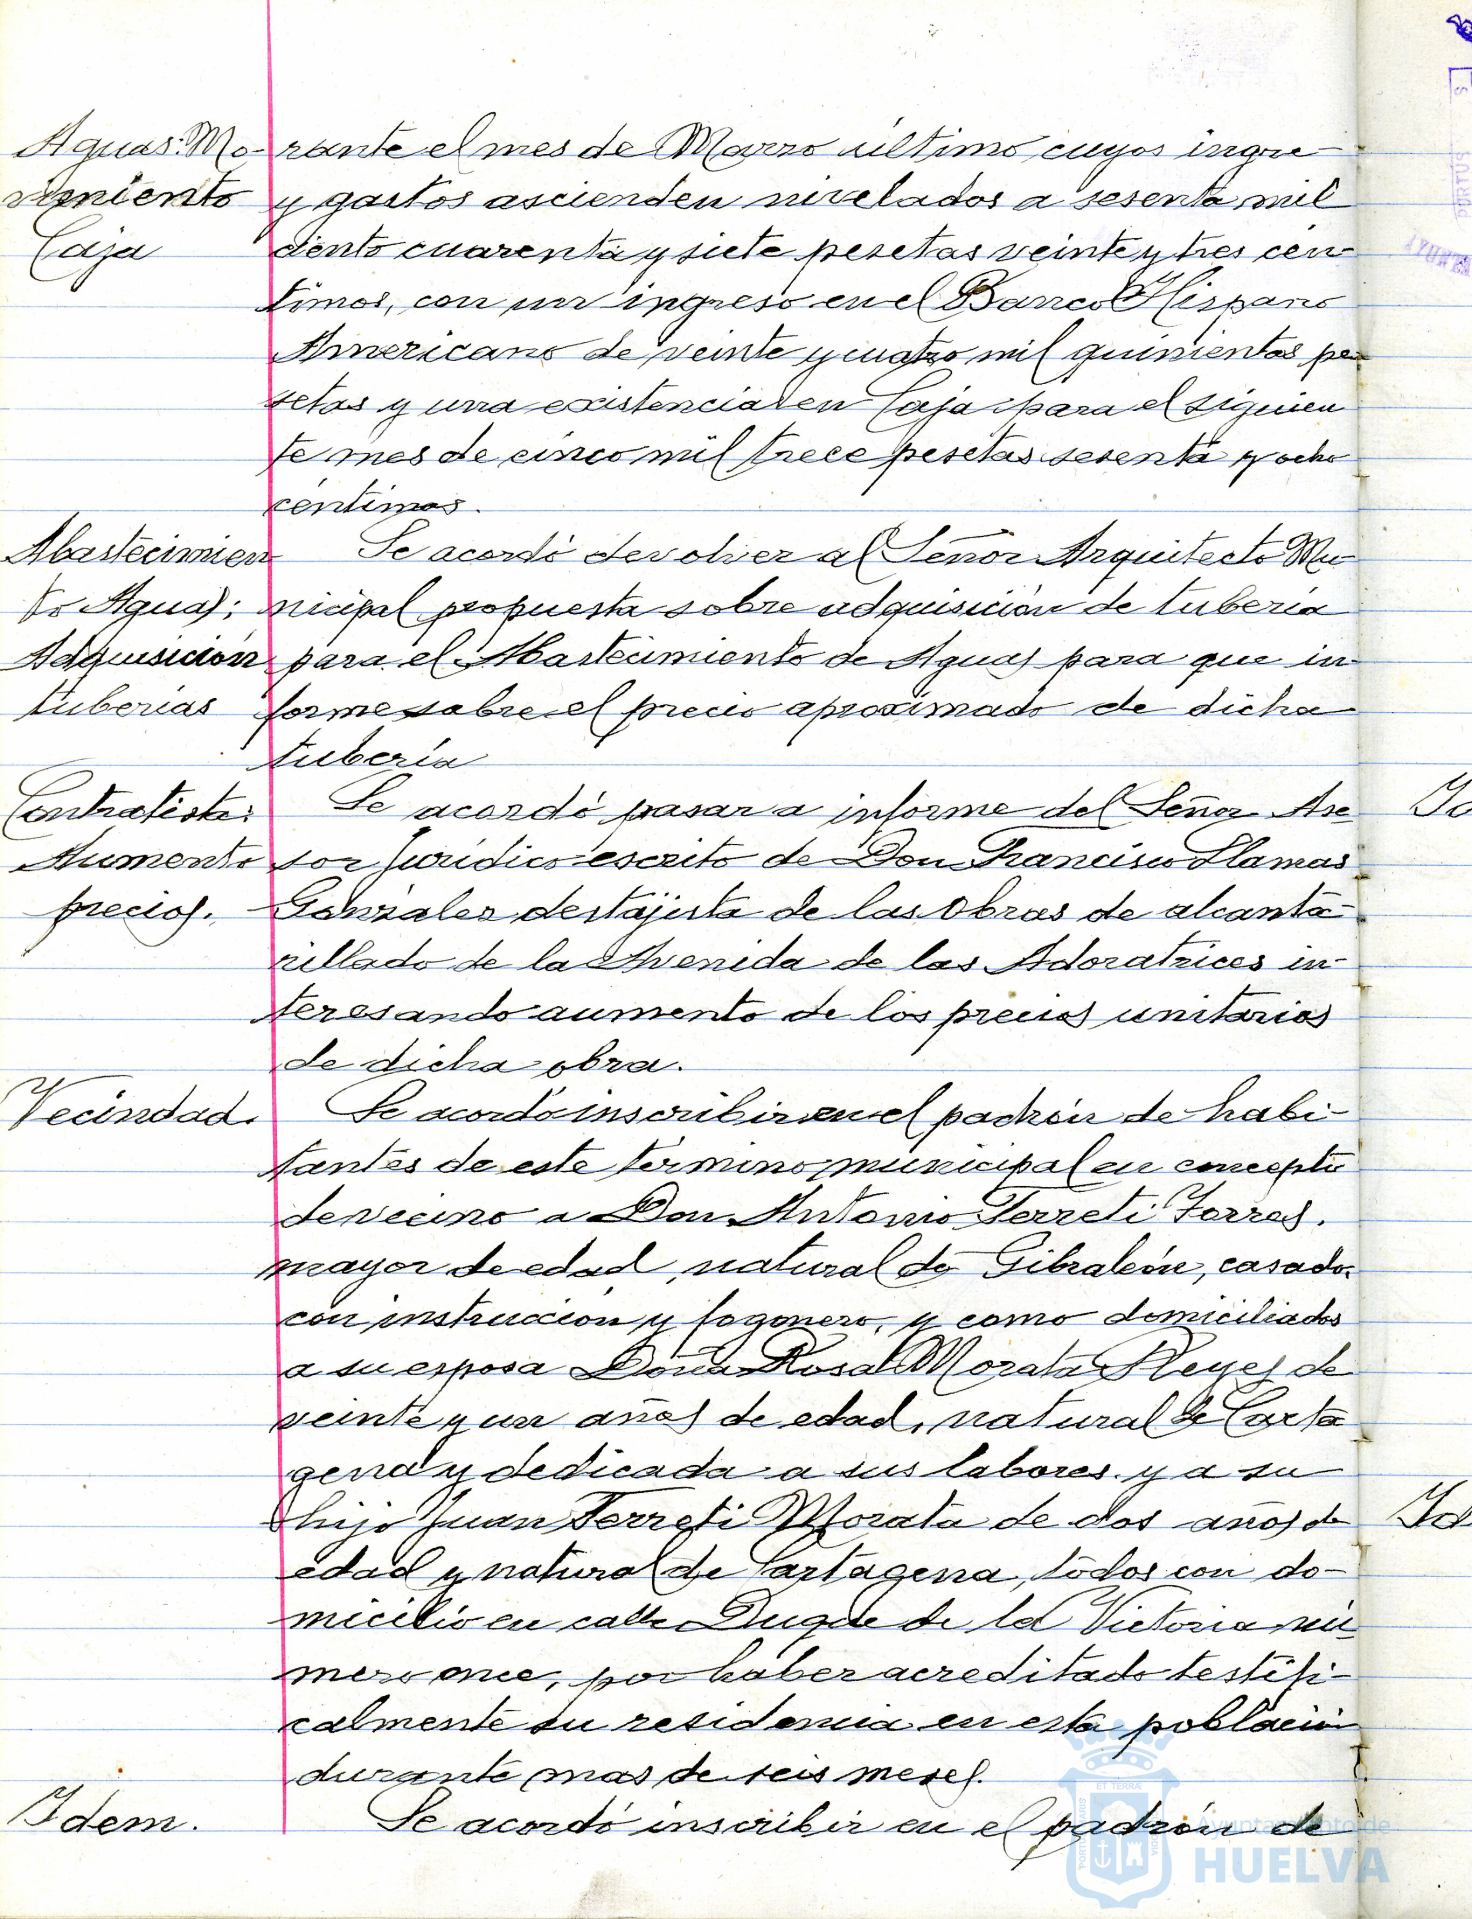 Aguas: Mo-
vimiento
Caja
rante el mes de Marzo último cuyos ingre-
y gastos ascienden nivelados a sesenta mil
ciento cuarenta y siete pesetas veinte y tres cén-
timos, con un ingreso en el Banco Hispano
Americano de veinte y cuatro mil quinientas pe-
setas y una existencia en Caja para el siguien
te mes de cinco mil trece pesetas sesenta y ocho
céntimos.
Abastecimien
to Aguas:
Adquisición
tuberías
Se acordó devolver al Señor Arquitecto Mu-
nicipal propuesta sobre adquisición de tubería
para el Abastecimiento de Aguas para que in-
forme sobre el precio aproximado de dicha
tubería
Contratista:
Aumento
precios.
Se acordó pasar a informe del Señor Ase-
sor Jurídico escrito de Don Francisco Llamas
González destajista de las Obras de alcanta-
rillado de la Avenida de las Adoratrices in-
teresando aumento de los precios unitarios
de dicha obra.
Vecindad.
Se acordó inscribir en el padrón de habi-
tantes de este término municipal en concepto
de vecino a Don Antonio Ferreti Torres.
mayor de edad, natural de Gibraleón, casado.
con instrucción y fogonero, y como domiciliados
a su esposa Doña Rosa Morata Reyes de
veinte y un años de edad, natural de Carta
gena y dedicada a sus labores y a su
hijo Juan Ferreti Morata de dos años de
edad y natural de Cartagena, todos con do-
micilio en calle Duque de la Victoria nú-
mero once, por haber acreditado testifi-
calmente su residencia en esta población
durante mas de seis meses.
Idem.
Se acordó inscribir en el padrón de
Id
Ayuntamiento de
HUELVA